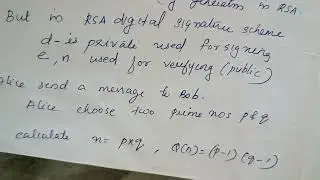 generation in RSA.
But in RSA digital signature scheme
d- is private used for signing
e, n used for verifying (public)
Alice send a message to Bob.
Alice choose two prime nos p & q
calculate n = p×q , Φ(n)=(p-1)(q-1)